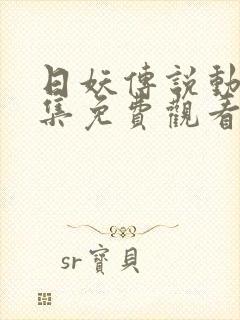 日妖傳說動
集免費觀看
sr寶貝